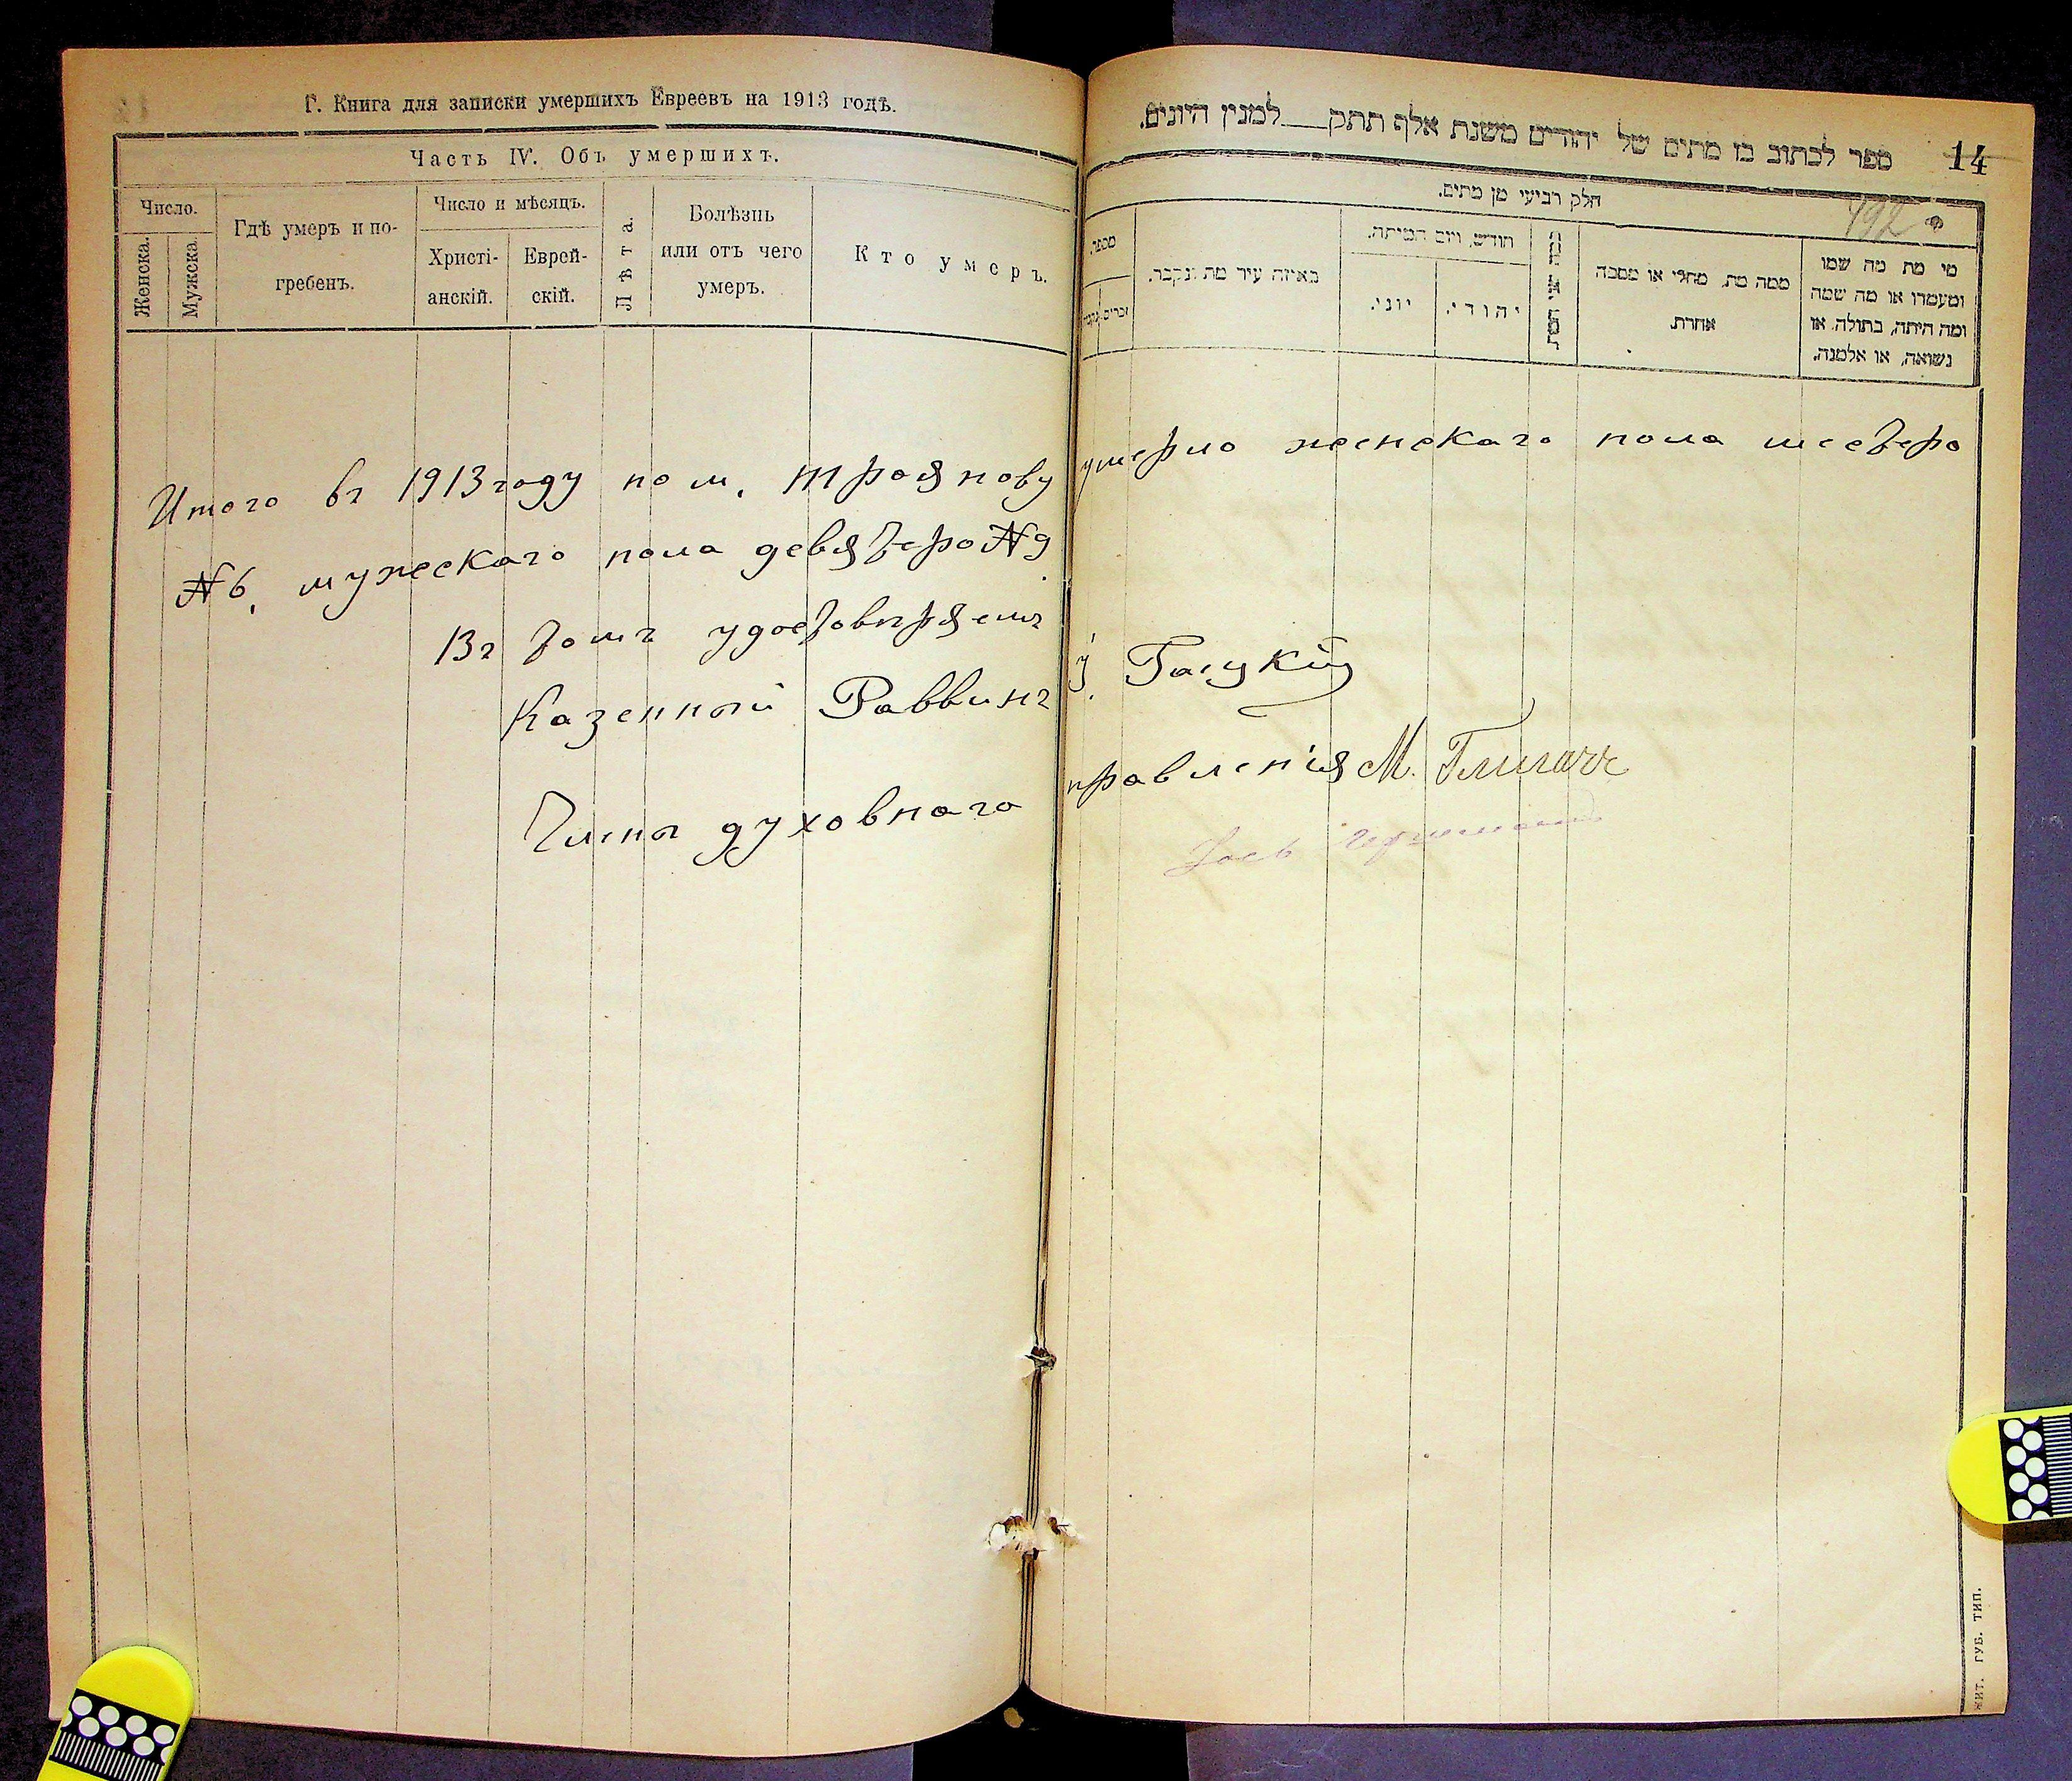 Г. Книга для записки умершихъ Евреевъ на 1913 годъ.
Часть IV. Объ умершихъ.
Число.
Женска.
Мужска.
Гдѣ умеръ и по-
гребенъ.
Число и мѣсяцъ.
Христі-
анскій.
Еврей-
скій.
Лѣта.
Болѣзнь
или отъ чего
умеръ.
Кто умеръ.
ספר לכתוב בו מתים של יהודים משנת אלף תתק__למנין היונים.
14
חלק רביעי מן מתים.
192
מספר.
זכרים.
באיזה עיר מת ונקבר.
חודש, ויום המיתה.
יוני.
יהודי.
ממה מת, מחלי או מסבה
אחרת.
מי מת מה שמו
ומעמדו או מה שמה
ומה היתה, בתולה, או
נשואה, או אלמנה.
Итого въ 1913 году по м. Троянову умерло женскаго пола шестеро
№ 6, мужескаго пола девятеро № 9
Въ томъ удостовѣряемъ
Казенный Раввинъ
Члены духовнаго правленія М.
ЖИТ. ГУБ. ТИП.